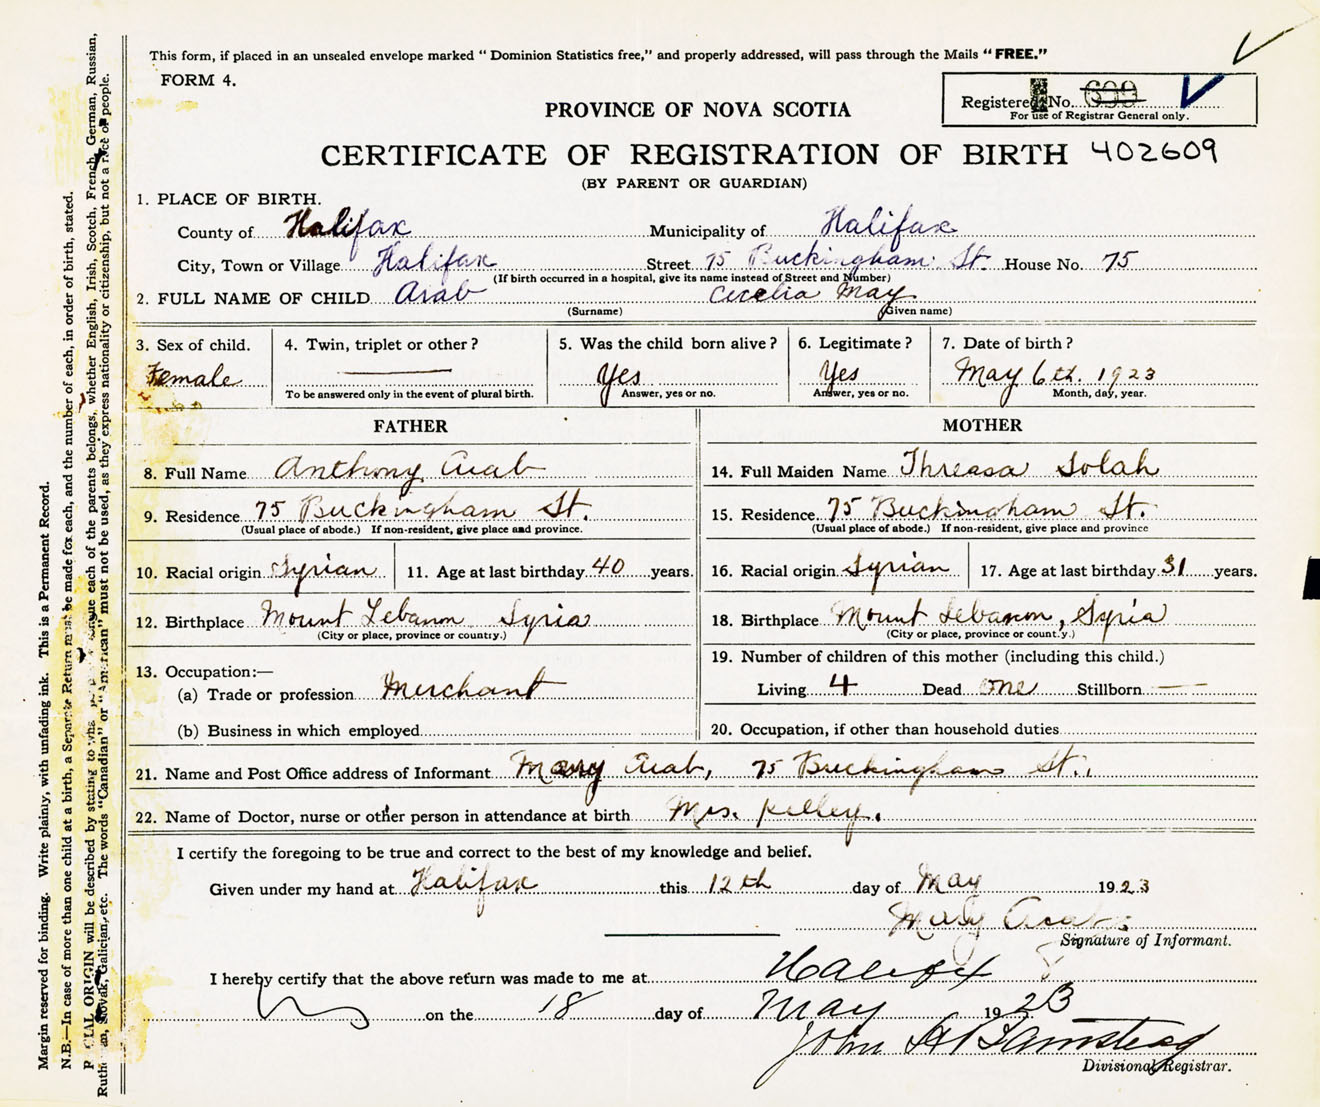 This form, if placed in an unsealed envelope marked “Dominion Statistics free,” and properly addressed, will pass through the Mails “FREE.”
FORM 4.
Registered No. 690
For use of Registrar General only.
PROVINCE OF NOVA SCOTIA
CERTIFICATE OF REGISTRATION OF BIRTH 402609
(BY PARENT OR GUARDIAN)
1. PLACE OF BIRTH.
County of Halifax Municipality of Halifax
City, Town or Village Halifax Street 75 Buckingham St. House No. 75
(If birth occurred in a hospital, give its name instead of Street and Number)
2. FULL NAME OF CHILD Arab Cecelia May
(Surname) (Given name)
3. Sex of child. 4. Twin, triplet or other? 5. Was the child born alive? 6. Legitimate? 7. Date of birth?
Female Yes Yes May 6th. 1923
To be answered only in the event of plural birth. Answer, yes or no. Answer, yes or no. Month, day, year.
FATHER MOTHER
8. Full Name Anthony Arab 14. Full Maiden Name Threasa Solah
9. Residence 75 Buckingham St. 15. Residence 75 Buckingham St.
(Usual place of abode.) If non-resident, give place and province. (Usual place of abode.) If non-resident, give place and province
10. Racial origin Syrian 11. Age at last birthday 40 years. 16. Racial origin Syrian 17. Age at last birthday 31 years.
12. Birthplace Mount Lebanon Syria 18. Birthplace Mount Lebanon, Syria
(City or place, province or country.) (City or place, province or country.)
13. Occupation:— 19. Number of children of this mother (including this child.)
(a) Trade or profession Merchant Living 4 Dead one Stillborn —
(b) Business in which employed 20. Occupation, if other than household duties
21. Name and Post Office address of Informant Mary Arab, 75 Buckingham St.,
22. Name of Doctor, nurse or other person in attendance at birth Mrs. Kelley.
I certify the foregoing to be true and correct to the best of my knowledge and belief.
Given under my hand at Halifax this 12th day of May 1923
Mary Arab
Signature of Informant.
I hereby certify that the above return was made to me at Halifax
on the 18 day of May 1923
John A
Divisional Registrar.
Margin reserved for binding. Write plainly, with unfading ink. This is a Permanent Record.
N.B.—In case of more than one child at a birth, a Separate Return must be made for each, and the number of each, in order of birth, stated.
RACIAL ORIGIN will be described by stating to what race each of the parents belongs, whether English, Irish, Scotch, French, German, Russian,
Ruthenian, Slovak, Galician, etc. The words “Canadian” or “American” must not be used, as they express nationality or citizenship, but not a race of people.